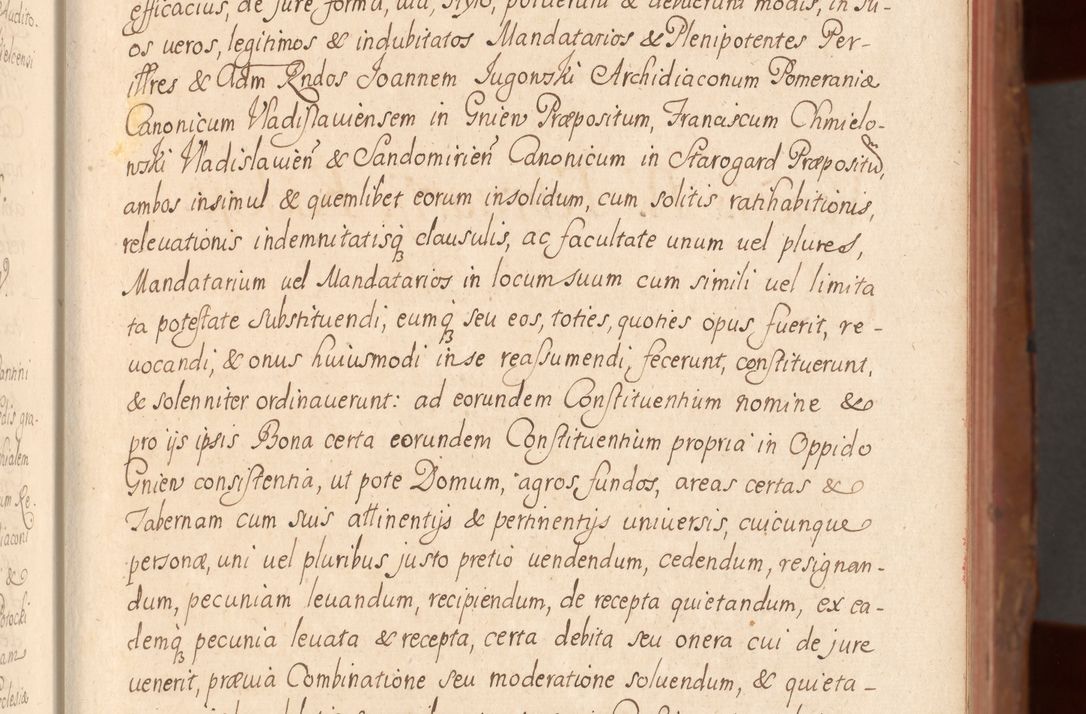 efficacius, de jure forma, uia, stylo, potuerunt & debuerunt modis, in su-
os ueros, legitimos & indubitatos Mandatarios & Plenipotentes Per-
illres & Adm Rndos Joannem Jugowski Archidiaconum Pomeraniæ
Canonicum Vladislauiensem in Gniew Præpositum, Franciscum Chmielo-
wski Vladislauien̄ & Sandomirien̄ Canonicum in Starogard Præpositū,
ambos insimul & quemlibet eorum insolidum, cum solitis ratihabitionis,
releuationis indemnitatisq́ʒ clausulis, ac facultate unum uel plures,
Mandatarium uel Mandatarios in locum suum cum simili uel limita
ta potestate substituendi, eumq́ʒ seu eos, toties, quoties opus fuerit, re-
uocandi, & onus huiusmodi in se reassumendi, fecerunt, constituerunt,
& solenniter ordinauerunt: ad eorundem Constituentium nomine &
pro ijs ipsis Bona certa eorundem Constituentium propria in Oppido
Gniew consistentia, ut pote Domum, agros, fundos, areas certas &
Tabernam cum suis attinentijs & pertinentijs uniuersis, cuicunque
personæ, uni uel pluribus justo pretio uendendum, cedendum, resignan-
dum, pecuniam leuandum, recipiendum, de recepta quietandum, ex ea-
demq́ʒ pecunia leuata & recepta, certa debita seu onera cui de jure
uenerit, præuia Combinatione seu moderatione soluendum, & quieta-